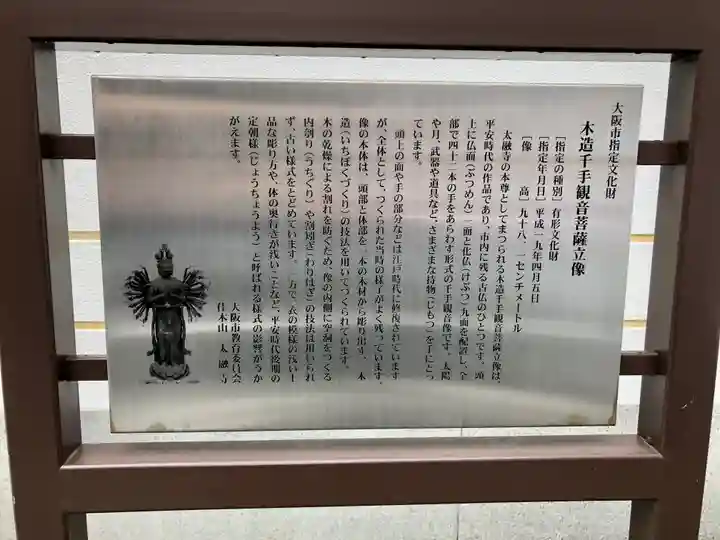 大阪市指定文化財
木造千手観音菩薩立像
［指定の種別］有形文化財
［指定年月日］平成一九年四月五日
［像　　高］九十八、一センチメートル
太融寺の本尊としてまつられる木造千手観音菩薩立像は、
平安時代の作品であり、市内に残る古仏のひとつです。頭
上に仏面（ぶつめん）一面と化仏（けぶつ）九面を配置し、全
部で四十二本の手をあらわす形式の千手観音像です。太陽
や月、武器や道具など、さまざまな持物（じもつ）を手にとっ
ています。
頭上の面や手の部分などは江戸時代に修復されています
が、全体として、つくられた当時の様子がよく残っています。
像の本体は、頭部と体部を一本の木材から彫り出す、一木
造（いちぼくづくり）の技法を用いてつくられています。
木の乾燥による割れを防ぐため、像の内側に空洞をつくる
内刳り（うちぐり）や割矧ぎ（わりはぎ）の技法は用いられ
ず、古い様式をとどめています。一方で、衣の模様の浅い上
品な彫り方や、体の奥行きが浅いことなど、平安時代後期の
定朝様（じょうちょうよう）と呼ばれる様式の影響がうか
がえます。
大阪市教育委員会
佳木山　太融寺